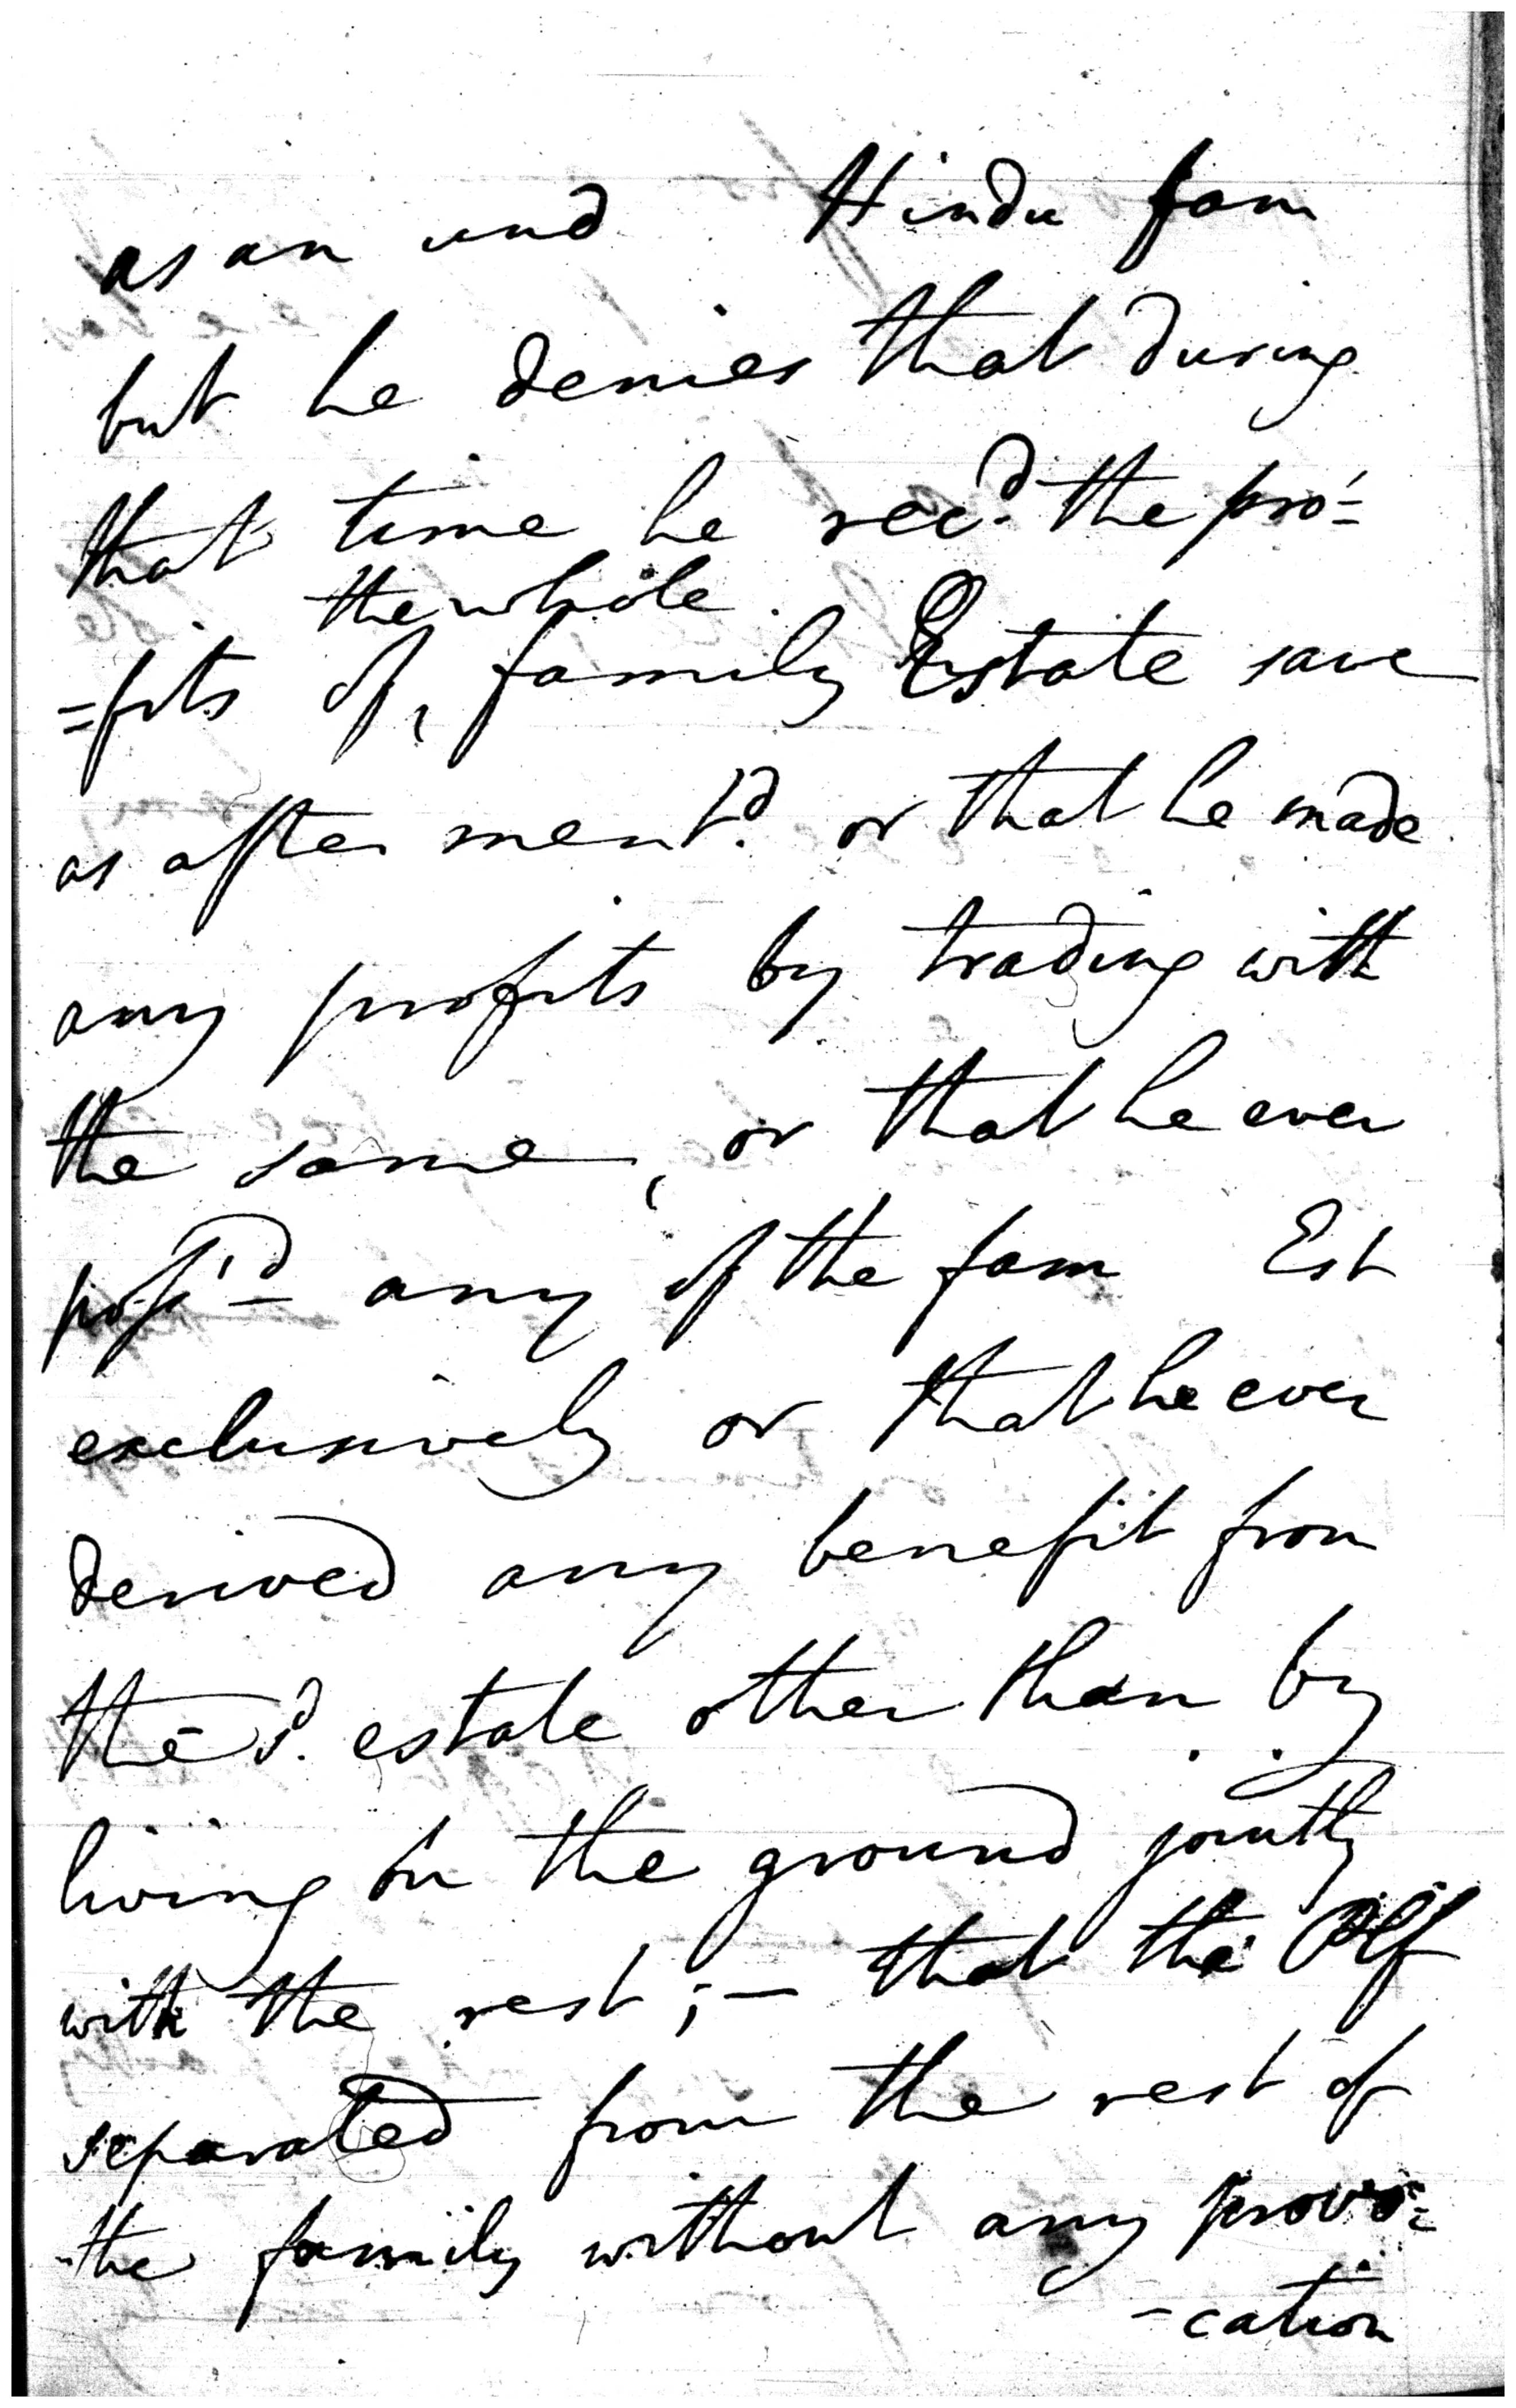 as an und Hindu fam
but he denies that during
that time he recd. the pro=
the whole
=fits of, family Estate save
as after mentd. or that he made
any profits by trading with
the same, or that he ever
poss'd any of the fam Est
exclusively or that he ever
derived any benefit from
the sd. estate other than by
living on the ground jointly
with the rest ;— that the Plf
separated from the rest of
the family without any provo=
-cation